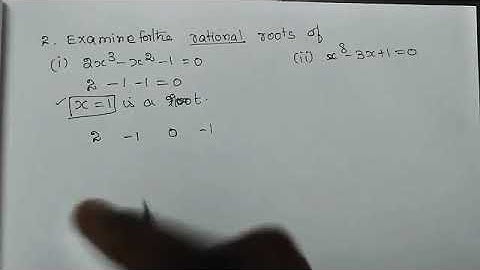 2. Examine for the rational roots of
(i) 2x³ - x² - 1 = 0 (ii) x⁸ - 3x + 1 = 0
2 - 1 - 1 = 0
✓ x = 1 is a root.
2 -1 0 -1